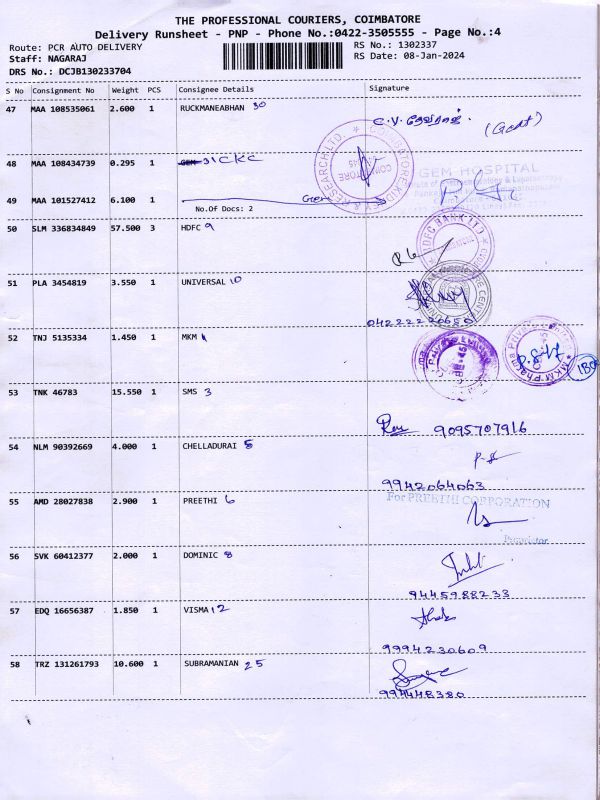 THE PROFESSIONAL COURIERS, COIMBATORE
Delivery Runsheet - PNP - Phone No.:0422-3505555 - Page No.:4
Route: PCR AUTO DELIVERY
RS No.: 1302337
Staff: NAGARAJ
RS Date: 08-Jan-2024
DRS No.: DCJB130233704
S No Consignment No Weight PCS Consignee Details Signature
47 MAA 108535061 2.600 1 RUCKMANEABHAN 30
C.V. தேவராஜ்
48 MAA 108434739 0.295 1 GEM 31 CKC
GEM HOSPITAL
49 MAA 101527412 6.100 1 Gem
No.Of Docs: 2
50 SLM 336834849 57.500 3 HDFC 9
HDFC BANK LTD
51 PLA 3454819 3.550 1 UNIVERSAL 10
04222220650
52 TNJ 5135334 1.450 1 MKM
MKM Pharma
53 TNK 46783 15.550 1 SMS 3
9095707916
54 NLM 90392669 4.000 1 CHELLADURAI 5
9942064063
55 AMD 28027838 2.900 1 PREETHI 6
For PREETHI CORPORATION
Proprietor
56 SVK 60412377 2.000 1 DOMINIC 8
9445988233
57 EDQ 16656387 1.850 1 VISMA 12
9994230609
58 TRZ 131261793 10.600 1 SUBRAMANIAN 25
994448380